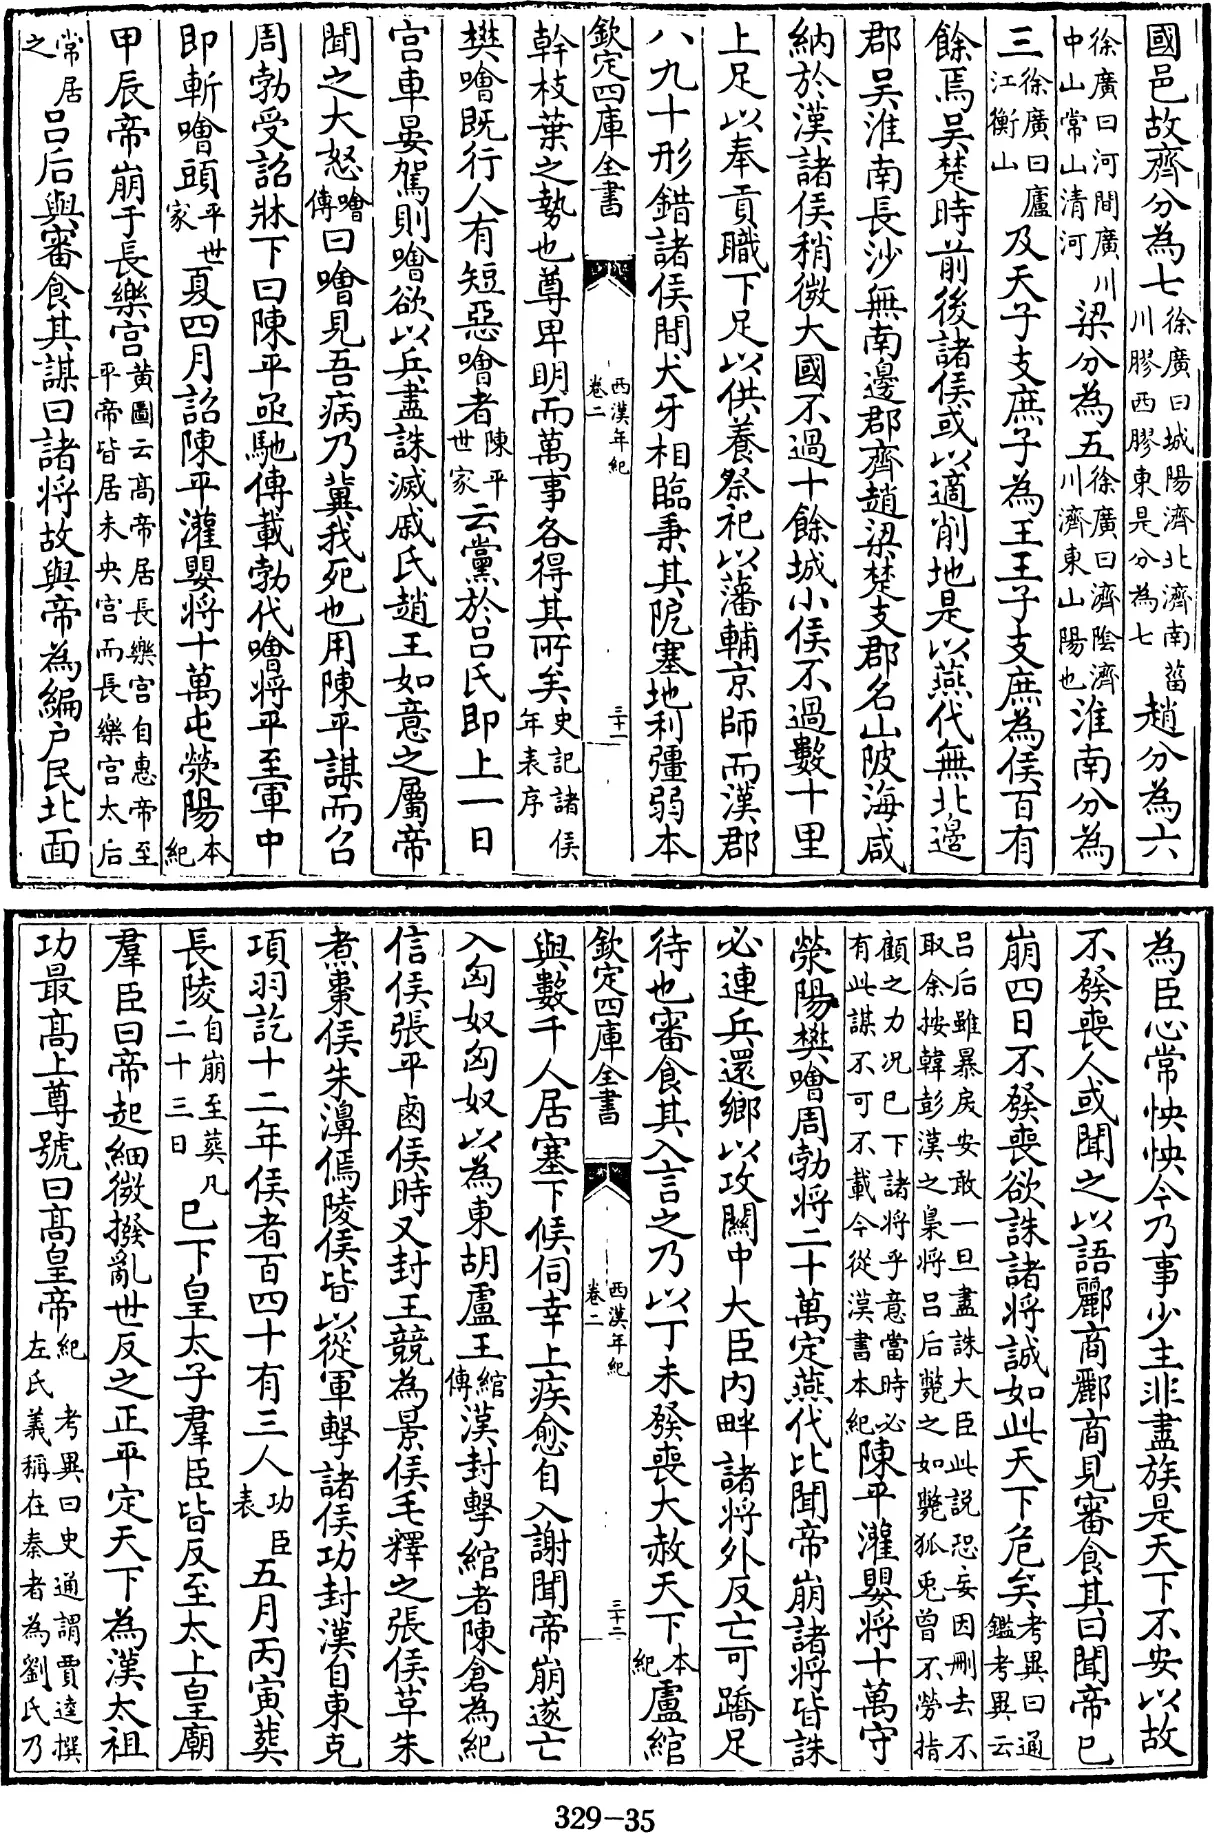 國邑故齊分為七徐廣曰城陽濟北濟南菑川膠西膠東是分為七趙分為六
徐廣曰河間廣川中山常山清河梁分為五徐廣曰濟隂濟川濟東山陽也淮南分為
三徐廣曰廬江衡山及天子支庶子為王王子支庶為侯百有
餘焉吴楚時前後諸侯或以適削地是以燕代無北邊
郡吴淮南長沙無南邊郡齊趙梁楚支郡名山陂海咸
納於漢諸侯稍微大國不過十餘城小侯不過數十里
上足以奉貢職下足以供養祭祀以藩輔京師而漢郡
八九十形錯諸侯間犬牙相臨秉其阨塞地利彊弱本
欽定四庫全書 西漢年紀 卷二 三十一
幹枝葉之勢也尊卑明而萬事各得其所矣史記諸侯年表序
樊噲既行人有短惡噲者陳平世家云黨於吕氏即上一日
宫車晏駕則噲欲以兵盡誅滅戚氏趙王如意之屬帝
聞之大怒噲傳曰噲見吾病乃冀我死也用陳平謀而召
周勃受詔牀下曰陳平亟馳傳載勃代噲將平至軍中
即斬噲頭平世家夏四月詔陳平灌嬰將十萬屯滎陽本紀
甲辰帝崩于長樂宫黄圖云高帝居長樂宫自惠帝至平帝皆居未央宫而長樂宫太后
常居之吕后與審食其謀曰諸將故與帝為編户民北面
為臣心常怏怏今乃事少主非盡族是天下不安以故
不發喪人或聞之以語酈商酈商見審食其曰聞帝已
崩四日不發喪欲誅諸將誠如此天下危矣考異曰通鑑考異云
吕后雖暴戾安敢一旦盡誅大臣此説恐妄因刪去不取余按韓彭漢之梟將吕后斃之如斃狐兎曾不勞指
顧之力况已下諸將乎意當時必有此謀不可不載今從漢書本紀陳平灌嬰將十萬守
滎陽樊噲周勃將二十萬定燕代比聞帝崩諸將皆誅
必連兵還鄉以攻關中大臣内畔諸將外反亡可蹻足
待也審食其入言之乃以丁未發喪大赦天下本紀盧綰
欽定四庫全書 西漢年紀 卷二 三十二
與數千人居塞下候伺幸上疾愈自入謝聞帝崩遂亡
入匈奴匈奴以為東胡盧王綰傳漢封擊綰者陳倉為紀
信侯張平鹵侯時又封王競為景侯毛釋之張侯革朱
煮棗侯朱濞傿陵侯皆以從軍擊諸侯功封漢自東克
項羽訖十二年侯者百四十有三人功臣表五月丙寅葬
長陵自崩至葬凡二十三日已下皇太子羣臣皆反至太上皇廟
羣臣曰帝起細微撥亂世反之正平定天下為漢太祖
功最髙上尊號曰髙皇帝紀考異曰史通謂賈逵撰左氏義稱在秦者為劉氏乃
329-35